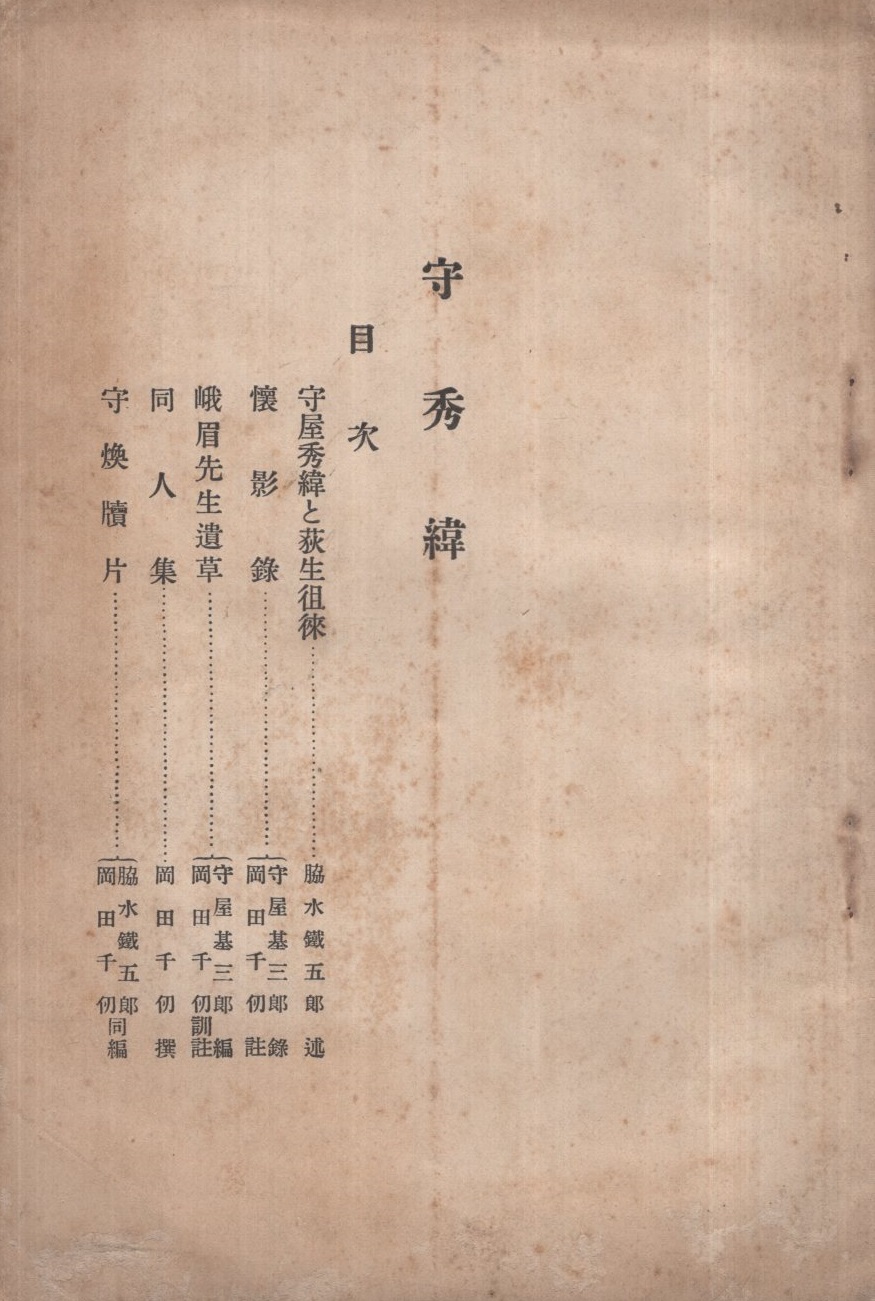 守秀緯
目次
守屋秀緯と荻生徂徠………脇水鐵五郎述
懷影錄………守屋基三郎錄
岡田千仭註
峨眉先生遺草………守屋基三郎編
岡田千仭訓註
同人集………岡田千仭撰
守煥牘片………脇水鐵五郎
岡田千仭同編